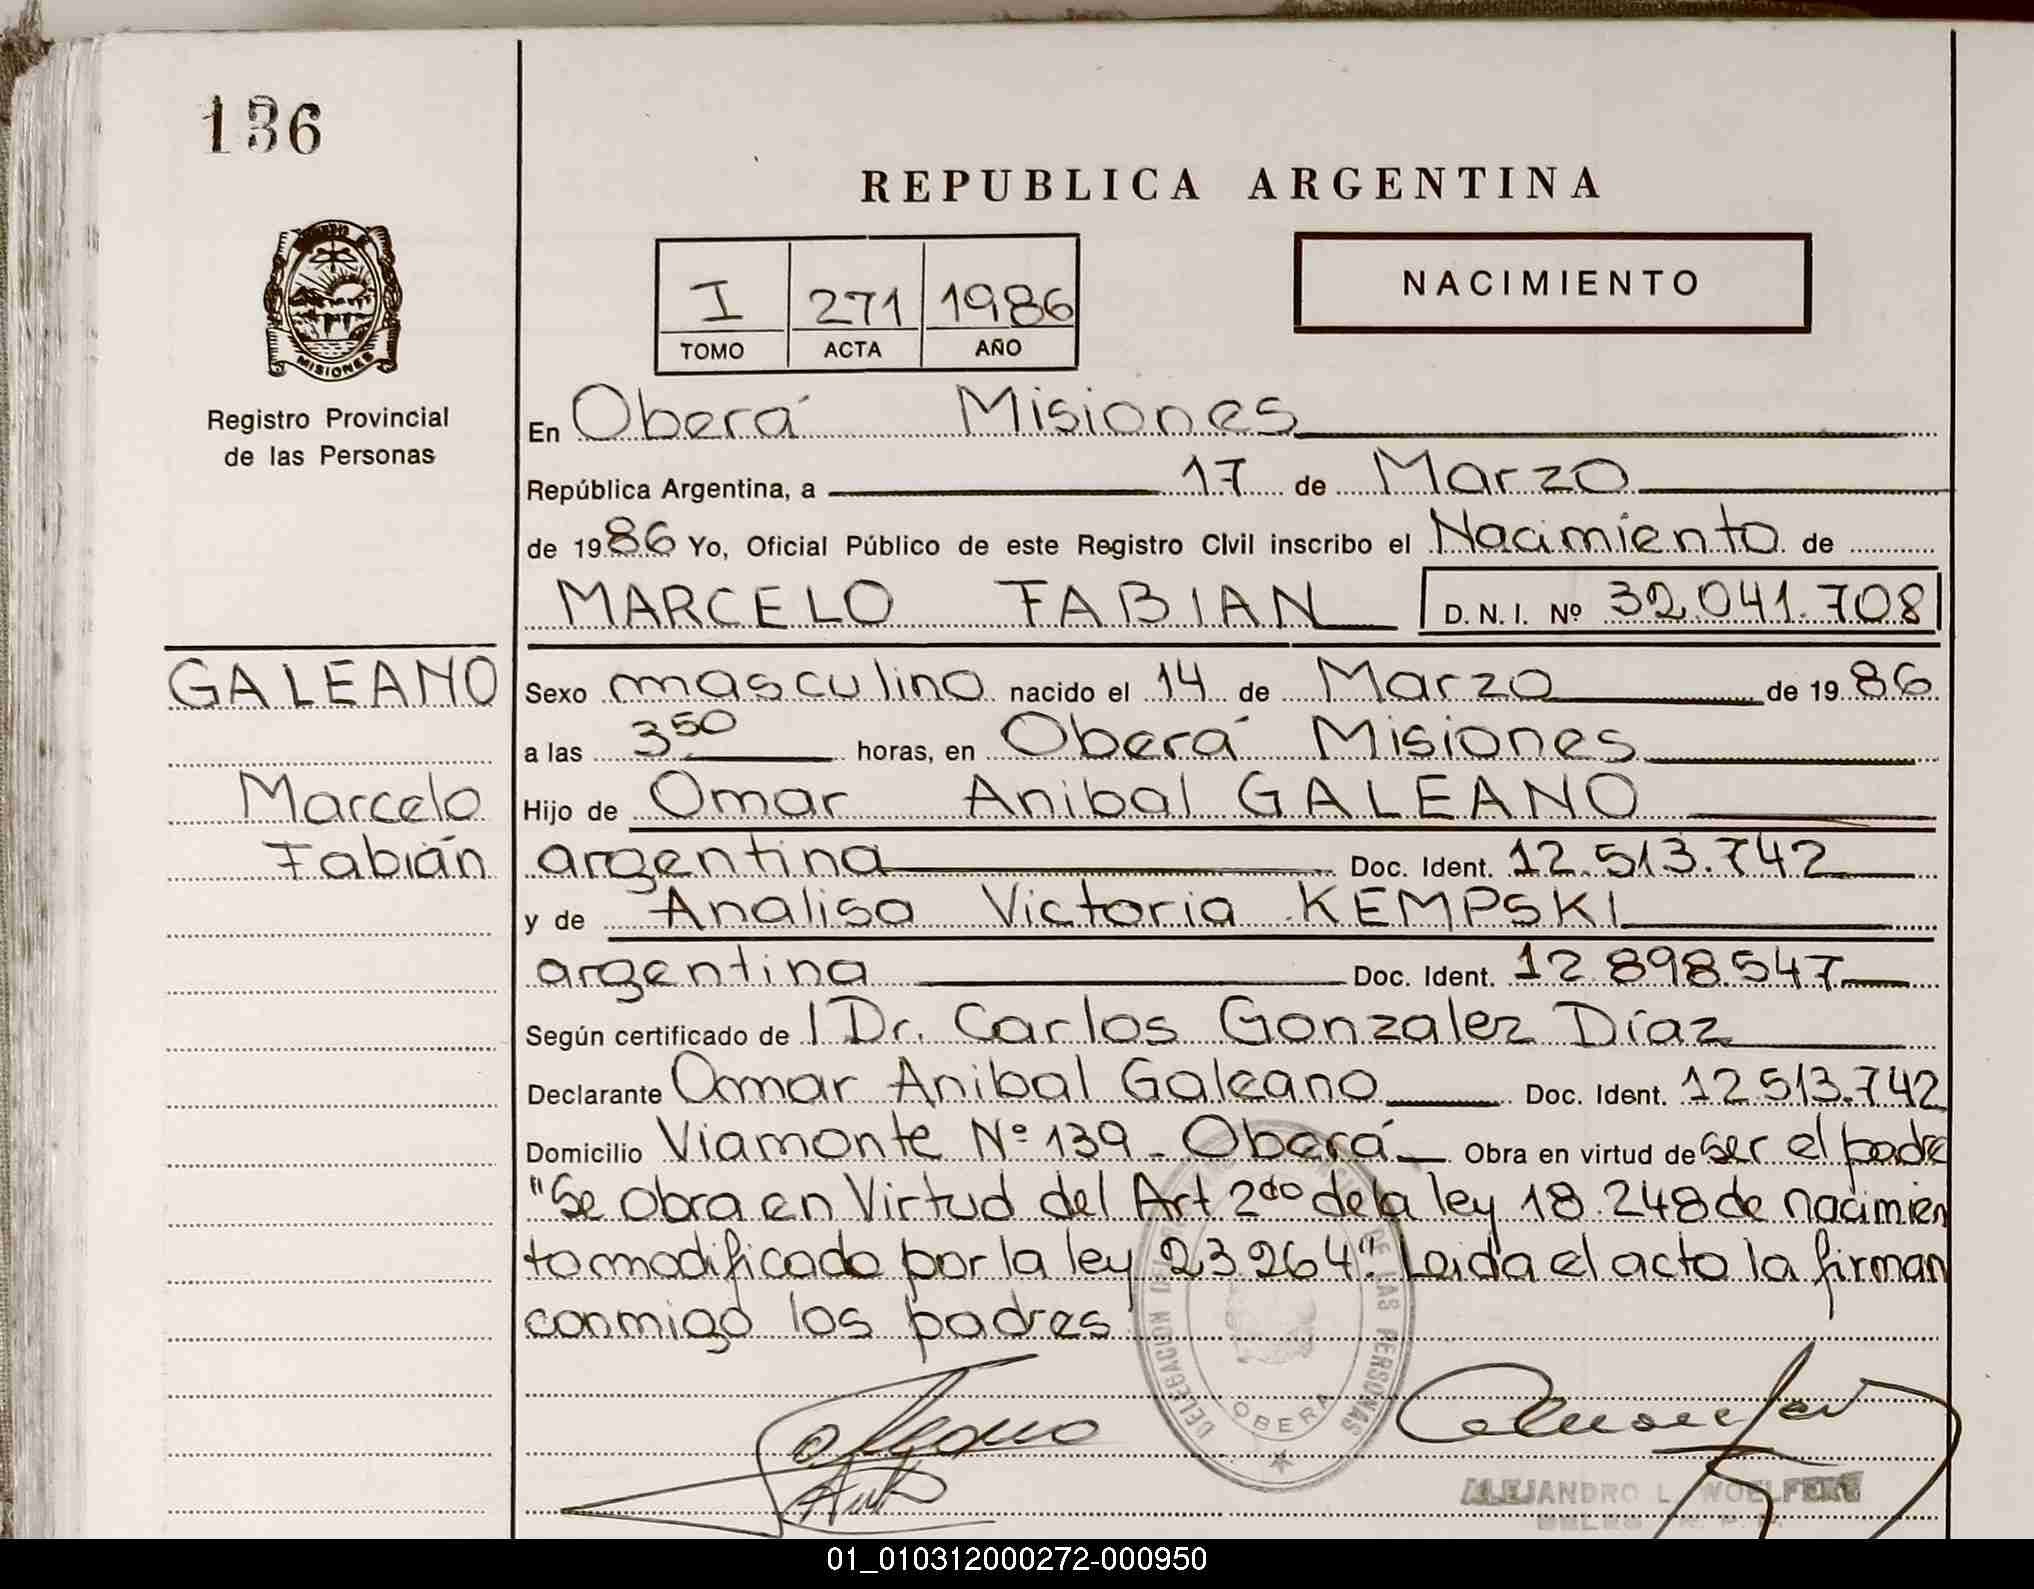 136
REPUBLICA ARGENTINA
NACIMIENTO
I 271 1986
TOMO ACTA AÑO
MISIONES
Registro Provincial
de las Personas
En Oberá Misiones
República Argentina, a 17 de Marzo
de 1986 Yo, Oficial Público de este Registro Civil inscribo el Nacimiento de
MARCELO FABIAN D. N. I. Nº 32.041.708
GALEANO
Marcelo
Fabián
Sexo masculino nacido el 14 de Marzo de 1986
a las 3 50 horas, en Oberá Misiones
Hijo de Omar Anibal GALEANO
argentina Doc. Ident. 12.513.742
y de Analisa Victoria KEMPSKI
argentina Doc. Ident. 12.898.547
Según certificado de l Dr. Carlos Gonzalez Díaz
Declarante Omar Anibal Galeano Doc. Ident. 12.513.742
Domicilio Viamonte Nº 139 - Oberá Obra en virtud de ser el padre
"Se obra en Virtud del Art 2do de la ley 18.248 de nacimien
to modificado por la ley 23.264". Leida el acto la firman
conmigo los padres
DELEGACION DE LAS PERSONAS
OBERA
ALEJANDRO L. WOELFERT
01_010312000272-000950